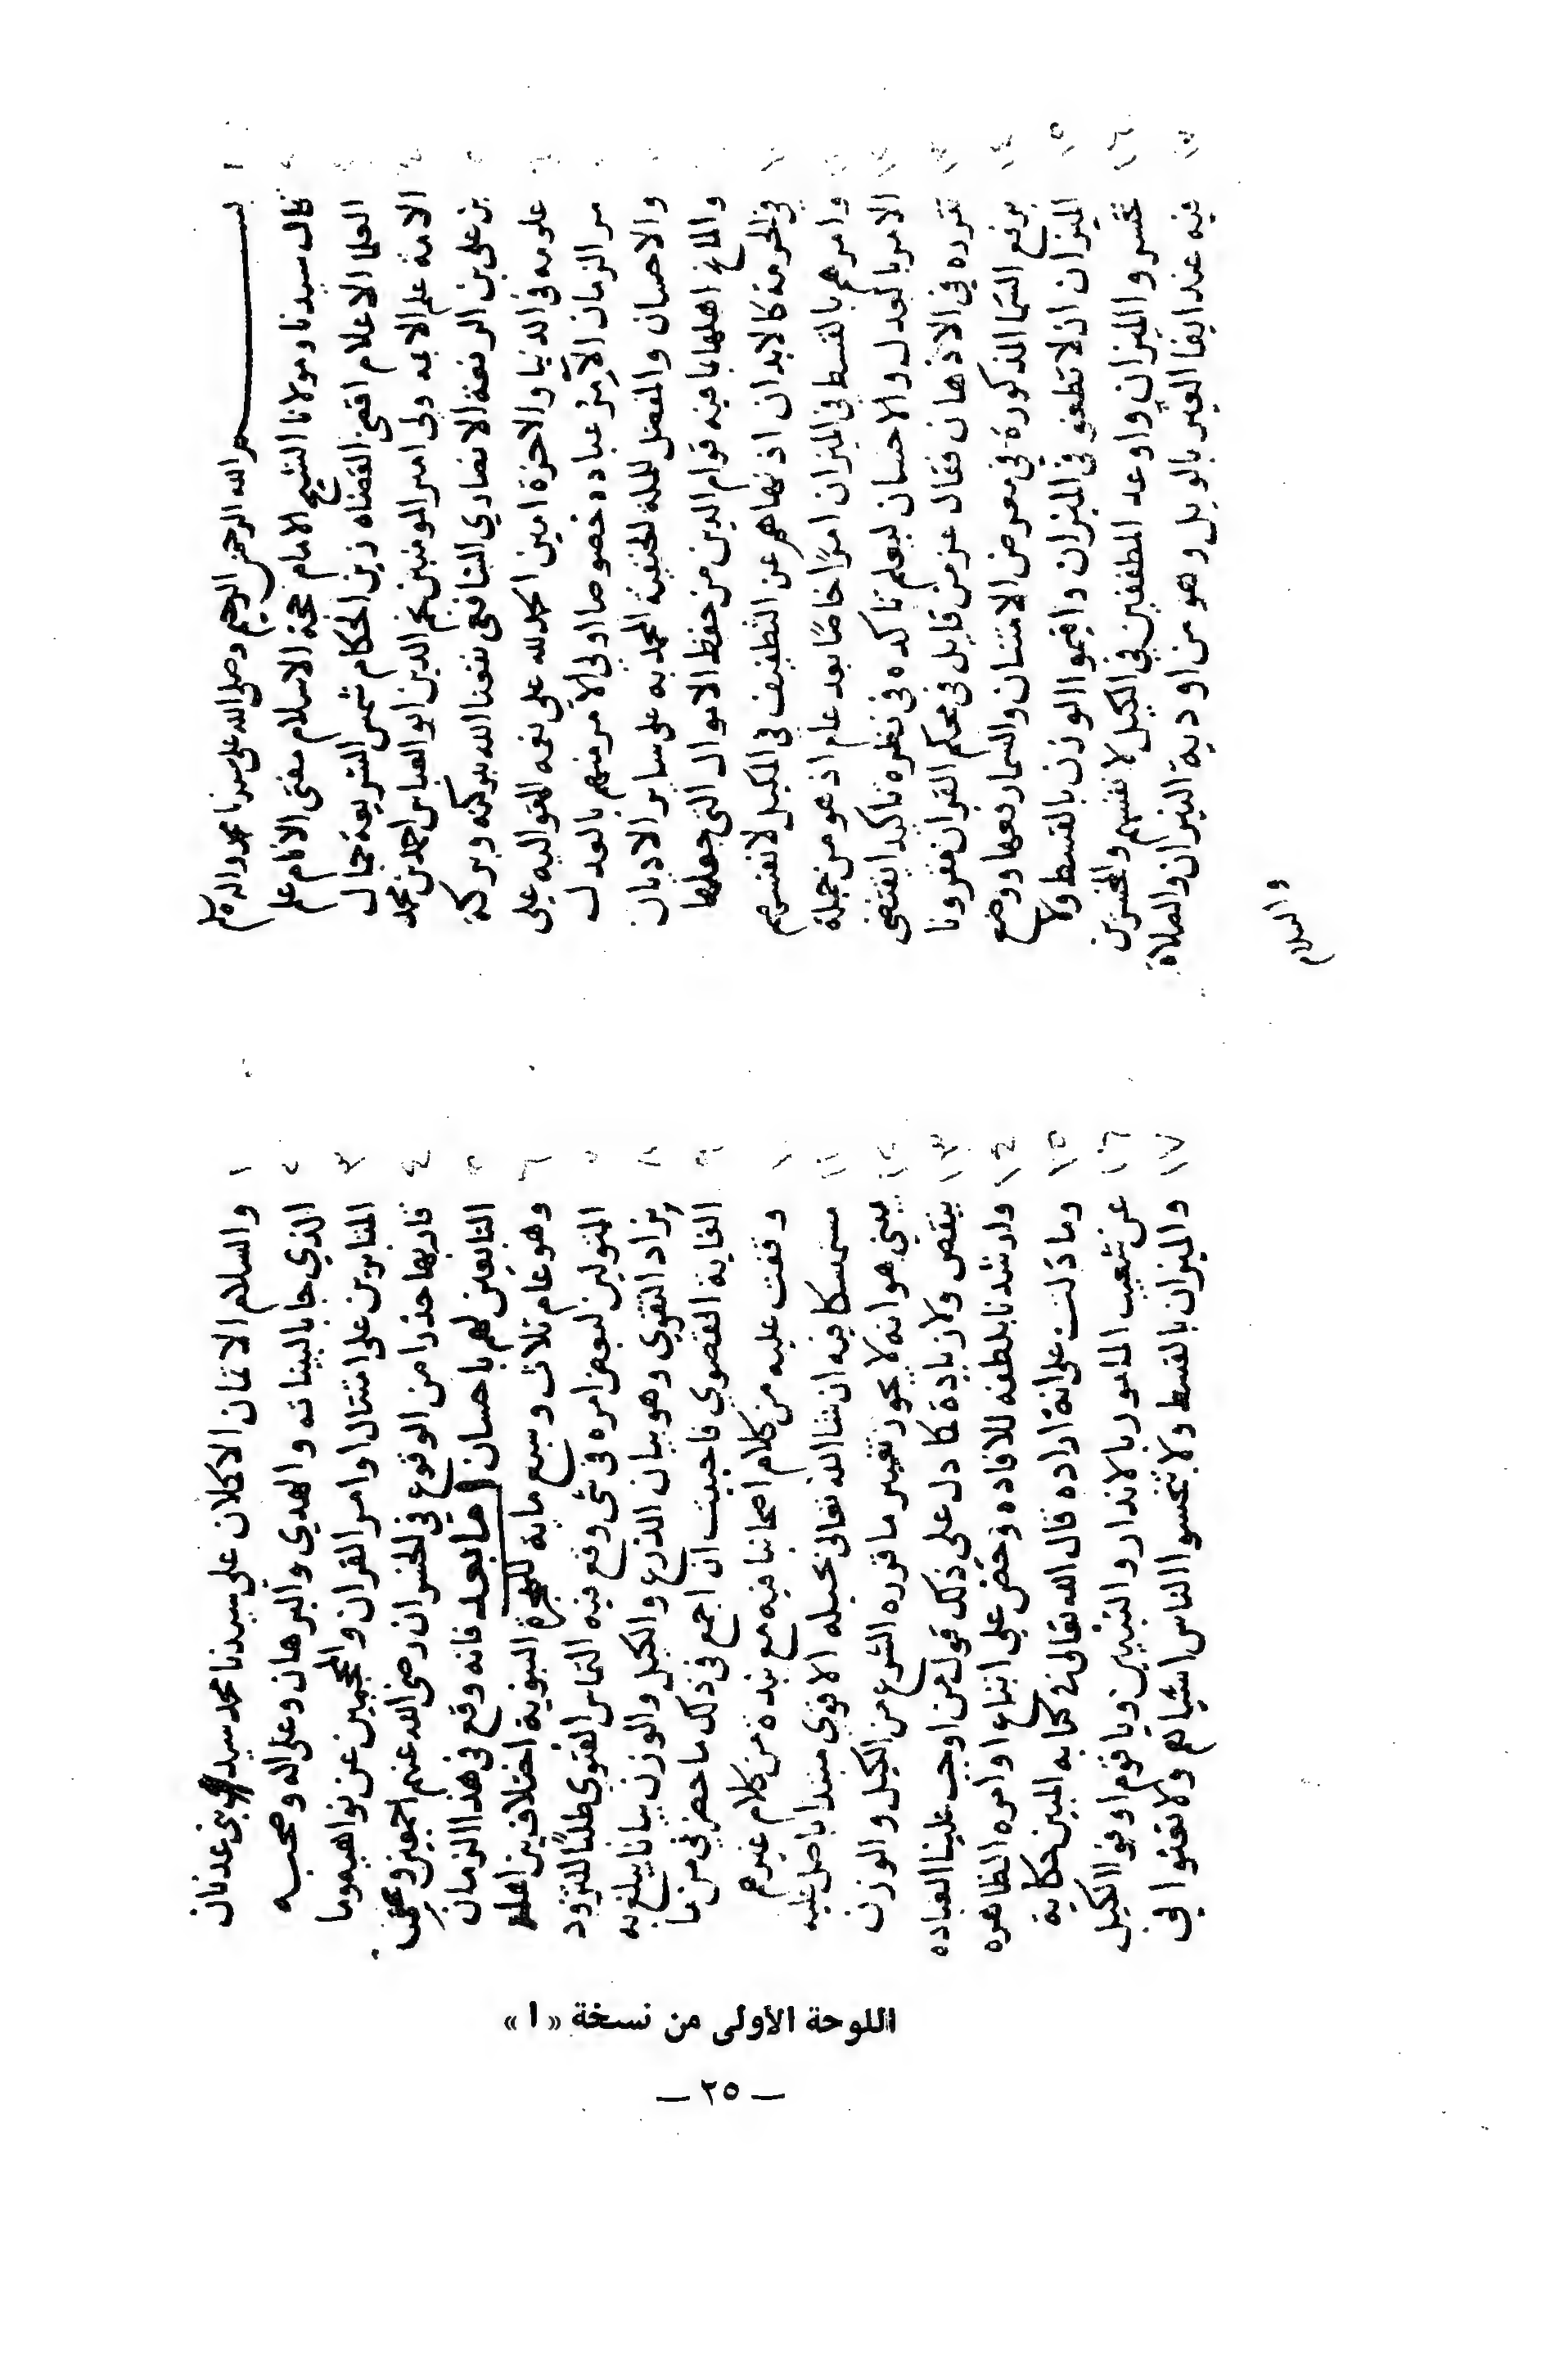 بسم الله الرحمن الرحيم وصلى الله على سيدنا محمد واله وسلم
قال سيدنا ومولانا الشيخ الامام حجة الاسلام مفتى الانام علم
العلما الاعلام اقضى القضاه زين الحكام شمس الشريعة جمال
الامة علم الايمه ولى امير المومنين نجم الدين ابو العباس احمد بن محمد
بن على بن الرفعة الانصاري الشافعى نفعنا الله ببركته وبركة
علومه فى الدنيا والاخرة امين الحمد لله على نعمه المتواليه على
مر الزمان الآمر عباده خصوصا اولي الامر منهم بالعدل
والاحسان والمفضل للملة الحنيفية المحمديه على ساير الاديان
والمانح اهلها بما فيه قوام الدين من حفظ الاموال التي جعلها
في الحرمة كالابدان اذ نهاهم عن التطفيف في المكيل لانفسهم
وامرهم بالقسط في الميزان امرًا خاصًا بعد عام اذ هو من جملة
الامر بالعدل والاحسان ليعلم تاكده فى نظره تاكيدا يقتضى
تقرره في الاذهان فقال عز من قايل فى محكم القران مقرونا
برفع السما المذكورة في معرض الامتنان والسما رفعها ووضع
الميزان ان لا تطغو في الميزان واقيموا الوزن بالقسط ولا
تخسروا الميزان واوعد المطففين في الكيل لانفسهم والمخسرين
فيه عند ايفا الغير بالويل وهو من اودية النيران والصلاة
والسلام
١ والسلام الاتمان الاكملان على سيدنا محمد سيد بنى عدنان
٢ الذي جا بالبينات والهدي والبرهان وعلى اله وصحبه
٣ المثابرين على امتثال اوامر القران والمحجمين عن نواهيه وما
٤ قاربها حذرا من الوقوع في الخسران رضى الله عنهم اجمعين وعن
٥ التابعين لهم باحسان اما بعد فانه وقع فى هذا الزمان
٦ وهو عام ثلاث وسبع ماية للهجرة النبوية اختلاف بين اهله
٧ المتولين لبعض امره فى شى وقع فيه التماس الفتوي طلبًا للتزود
٨ بزاد التقوي وهو بيان الذرع والكيل والوزن بيانا يبلغ به
٩ الغاية القصوي فاحببت ان اجمع فى ذلك ما حضرني من ما
١٠ وقفت عليه من كلام اصحابنا فيه مع نبذة من كلام غيرهم
١١ مستمسكا فيه ان شا الله تعالى بحبله الاقوي مبتدا باصل عليه
١٢ يبنى هو انه لا يجوز تغيير ما قرره الشرع من الكيل والوزن
١٣ بنقص ولا زيادة كما دل على ذلك قول من اوجب علينا العباده
١٤ وارشدنا بلطفه للافاده وحض على اتباع اوامره الظاهره
١٥ وما دلت على انه اراده قال الله تعالى فى كتابه المبين حكاية
١٦ عن شعيب المامور بالانذار والتبيين ويا قوم اوفوا الكيل
١٧ والميزان بالقسط ولا تبخسوا الناس اشياهم ولا تعثوا في
اللوحة الأولى من نسخة «ا»
— ٢٥ —